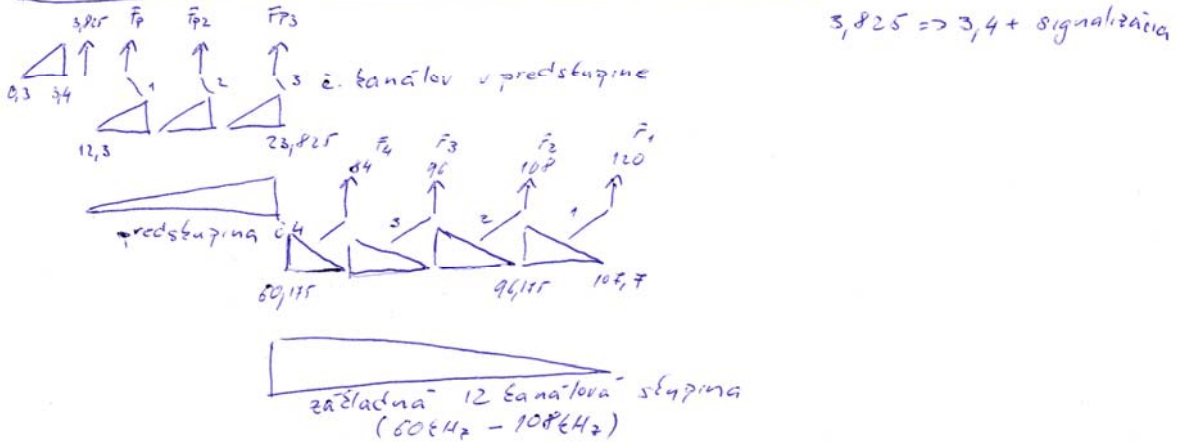 3,825 Fp Fp2 Fp3
3,825 => 3,4 + signalizácia
0,3 3,4
1 2 3 č. kanálov v predskupine
12,3 23,825
F4 F3 F2 F1
84 96 108 120
predskupina č. 4 3 2 1
60,175 96,175 107,7
základná 12 kanálová skupina
(60kHz - 108kHz)